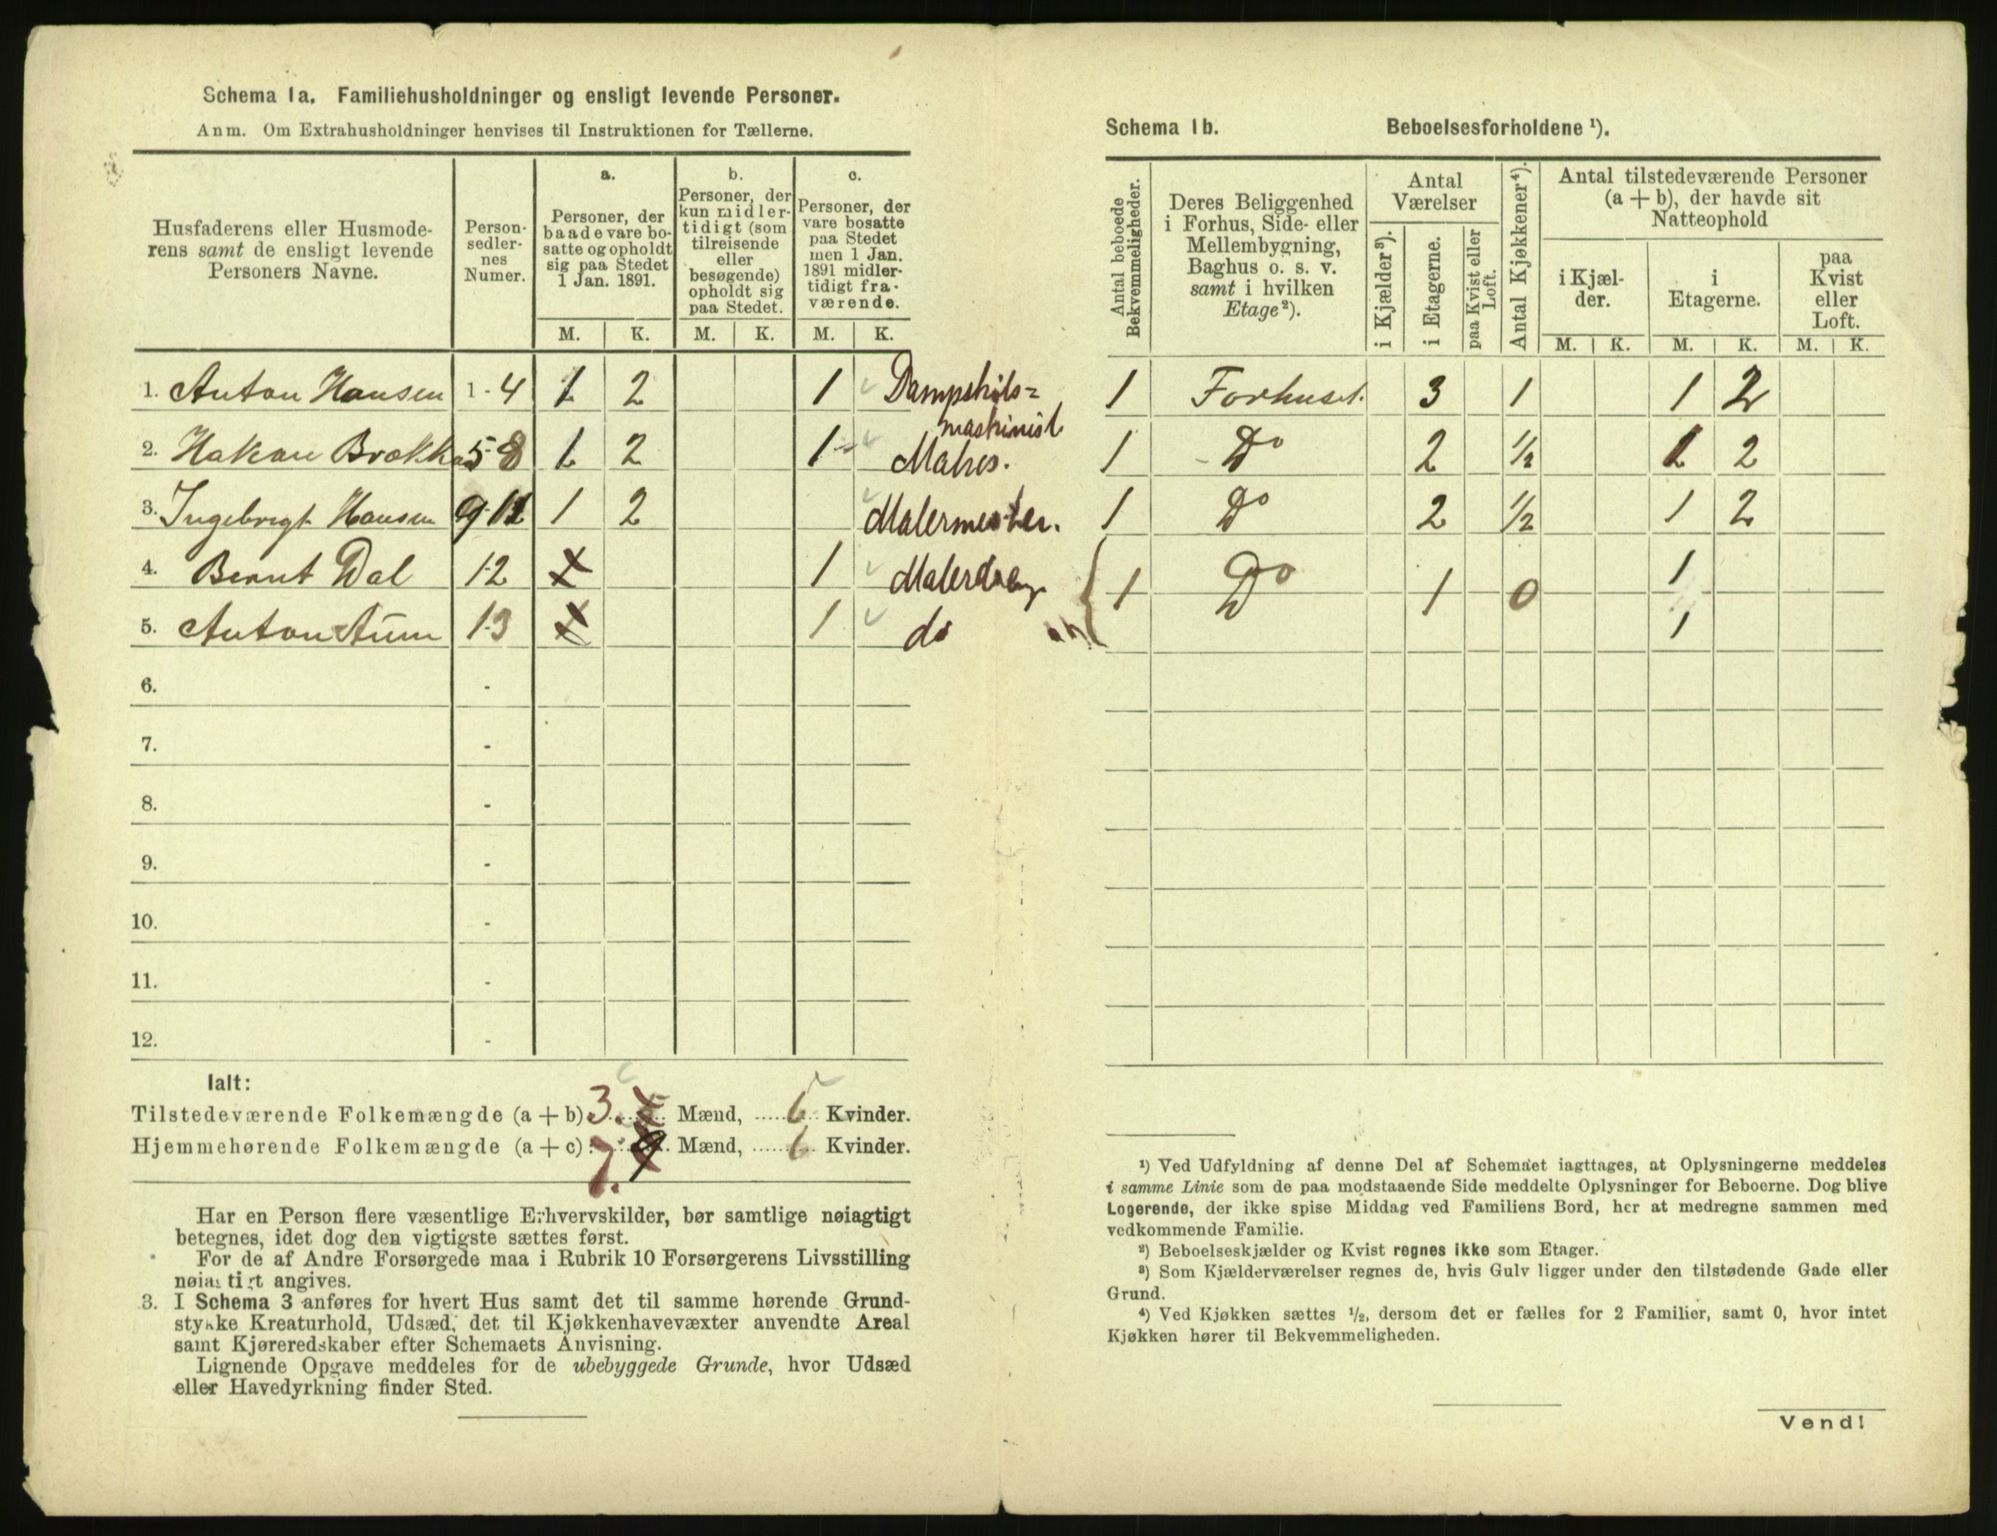 Schema 1a. Familiehusholdninger og ensligt levende Personer.
Anm. Om Extrahusholdninger henvises til Instruktionen for Tællerne.
Husfaderens eller Husmode-
rens samt de ensligt levende
Personers Navne.
Person-
sedler-
nes
Numer.
a.
Personer, der
baade vare bo-
satte og opholdt
sig paa Stedet
1 Jan. 1891.
b.
Personer, der
kun midler-
tidigt (som
tilreisende
eller
besøgende)
opholdt sig
paa Stedet.
c.
Personer, der
vare bosatte
paa Stedet
men 1 Jan.
1891 midler-
tidigt fra-
værende.
M. K. M. K. M. K.
1. Anton Hansen 1-4 1 2 1 Dampskibs=
maskinist
2. Hakan Brokka 5-8 1 2 1 Matros.
3. Ingebrigt Hansen 9-11 1 2 Malermester.
4. Bernt Dal 12 x 1 Malerdreng
5. Anton Aum 13 x 1 do
6. -
7. -
8. -
9. -
10. -
11. -
12. -
Ialt:
Tilstedeværende Folkemængde (a + b) 3. Mænd, 6 Kvinder.
Hjemmehørende Folkemængde (a + c): 7. 9 Mænd, 6 Kvinder.
Har en Person flere væsentlige Erhvervskilder, bør samtlige nøiagtigt
betegnes, idet dog den vigtigste sættes først.
For de af Andre Forsørgede maa i Rubrik 10 Forsørgerens Livsstilling
nøiagtigt angives.
3. I Schema 3 anføres for hvert Hus samt det til samme hørende Grund-
stykke Kreaturhold, Udsæd, det til Kjøkkenhavevæxter anvendte Areal
samt Kjøreredskaber efter Schemaets Anvisning.
Lignende Opgave meddeles for de ubebyggede Grunde, hvor Udsæd
eller Havedyrkning finder Sted.
Schema 1b. Beboelsesforholdene ¹).
Antal beboede
Bekvemmeligheder.
Deres Beliggenhed
i Forhus, Side- eller
Mellembygning,
Baghus o. s. v.
samt i hvilken
Etage ²).
Antal
Værelser
i Kjælder ³).
i Etagerne.
paa Kvist eller
Loft.
Antal Kjøkkener ⁴).
Antal tilstedeværende Personer
(a + b), der havde sit
Natteophold
i Kjæl-
der.
i
Etagerne.
paa
Kvist
eller
Loft.
M. K. M. K. M. K.
1 Forhuset. 3 1 1 2
1 Do 2 ½ 1 2
1 Do 2 ½ 1 2
1 Do 1 0 1
1
¹) Ved Udfyldning af denne Del af Schemaet iagttages, at Oplysningerne meddeles
i samme Linie som de paa modstaaende Side meddelte Oplysninger for Beboerne. Dog blive
Logerende, der ikke spise Middag ved Familiens Bord, her at medregne sammen med
vedkommende Familie.
²) Beboelseskjælder og Kvist regnes ikke som Etager.
³) Som Kjælderværelser regnes de, hvis Gulv ligger under den tilstødende Gade eller
Grund.
⁴) Ved Kjøkken sættes ½, dersom det er fælles for 2 Familier, samt 0, hvor intet
Kjøkken hører til Bekvemmeligheden.
Vend!